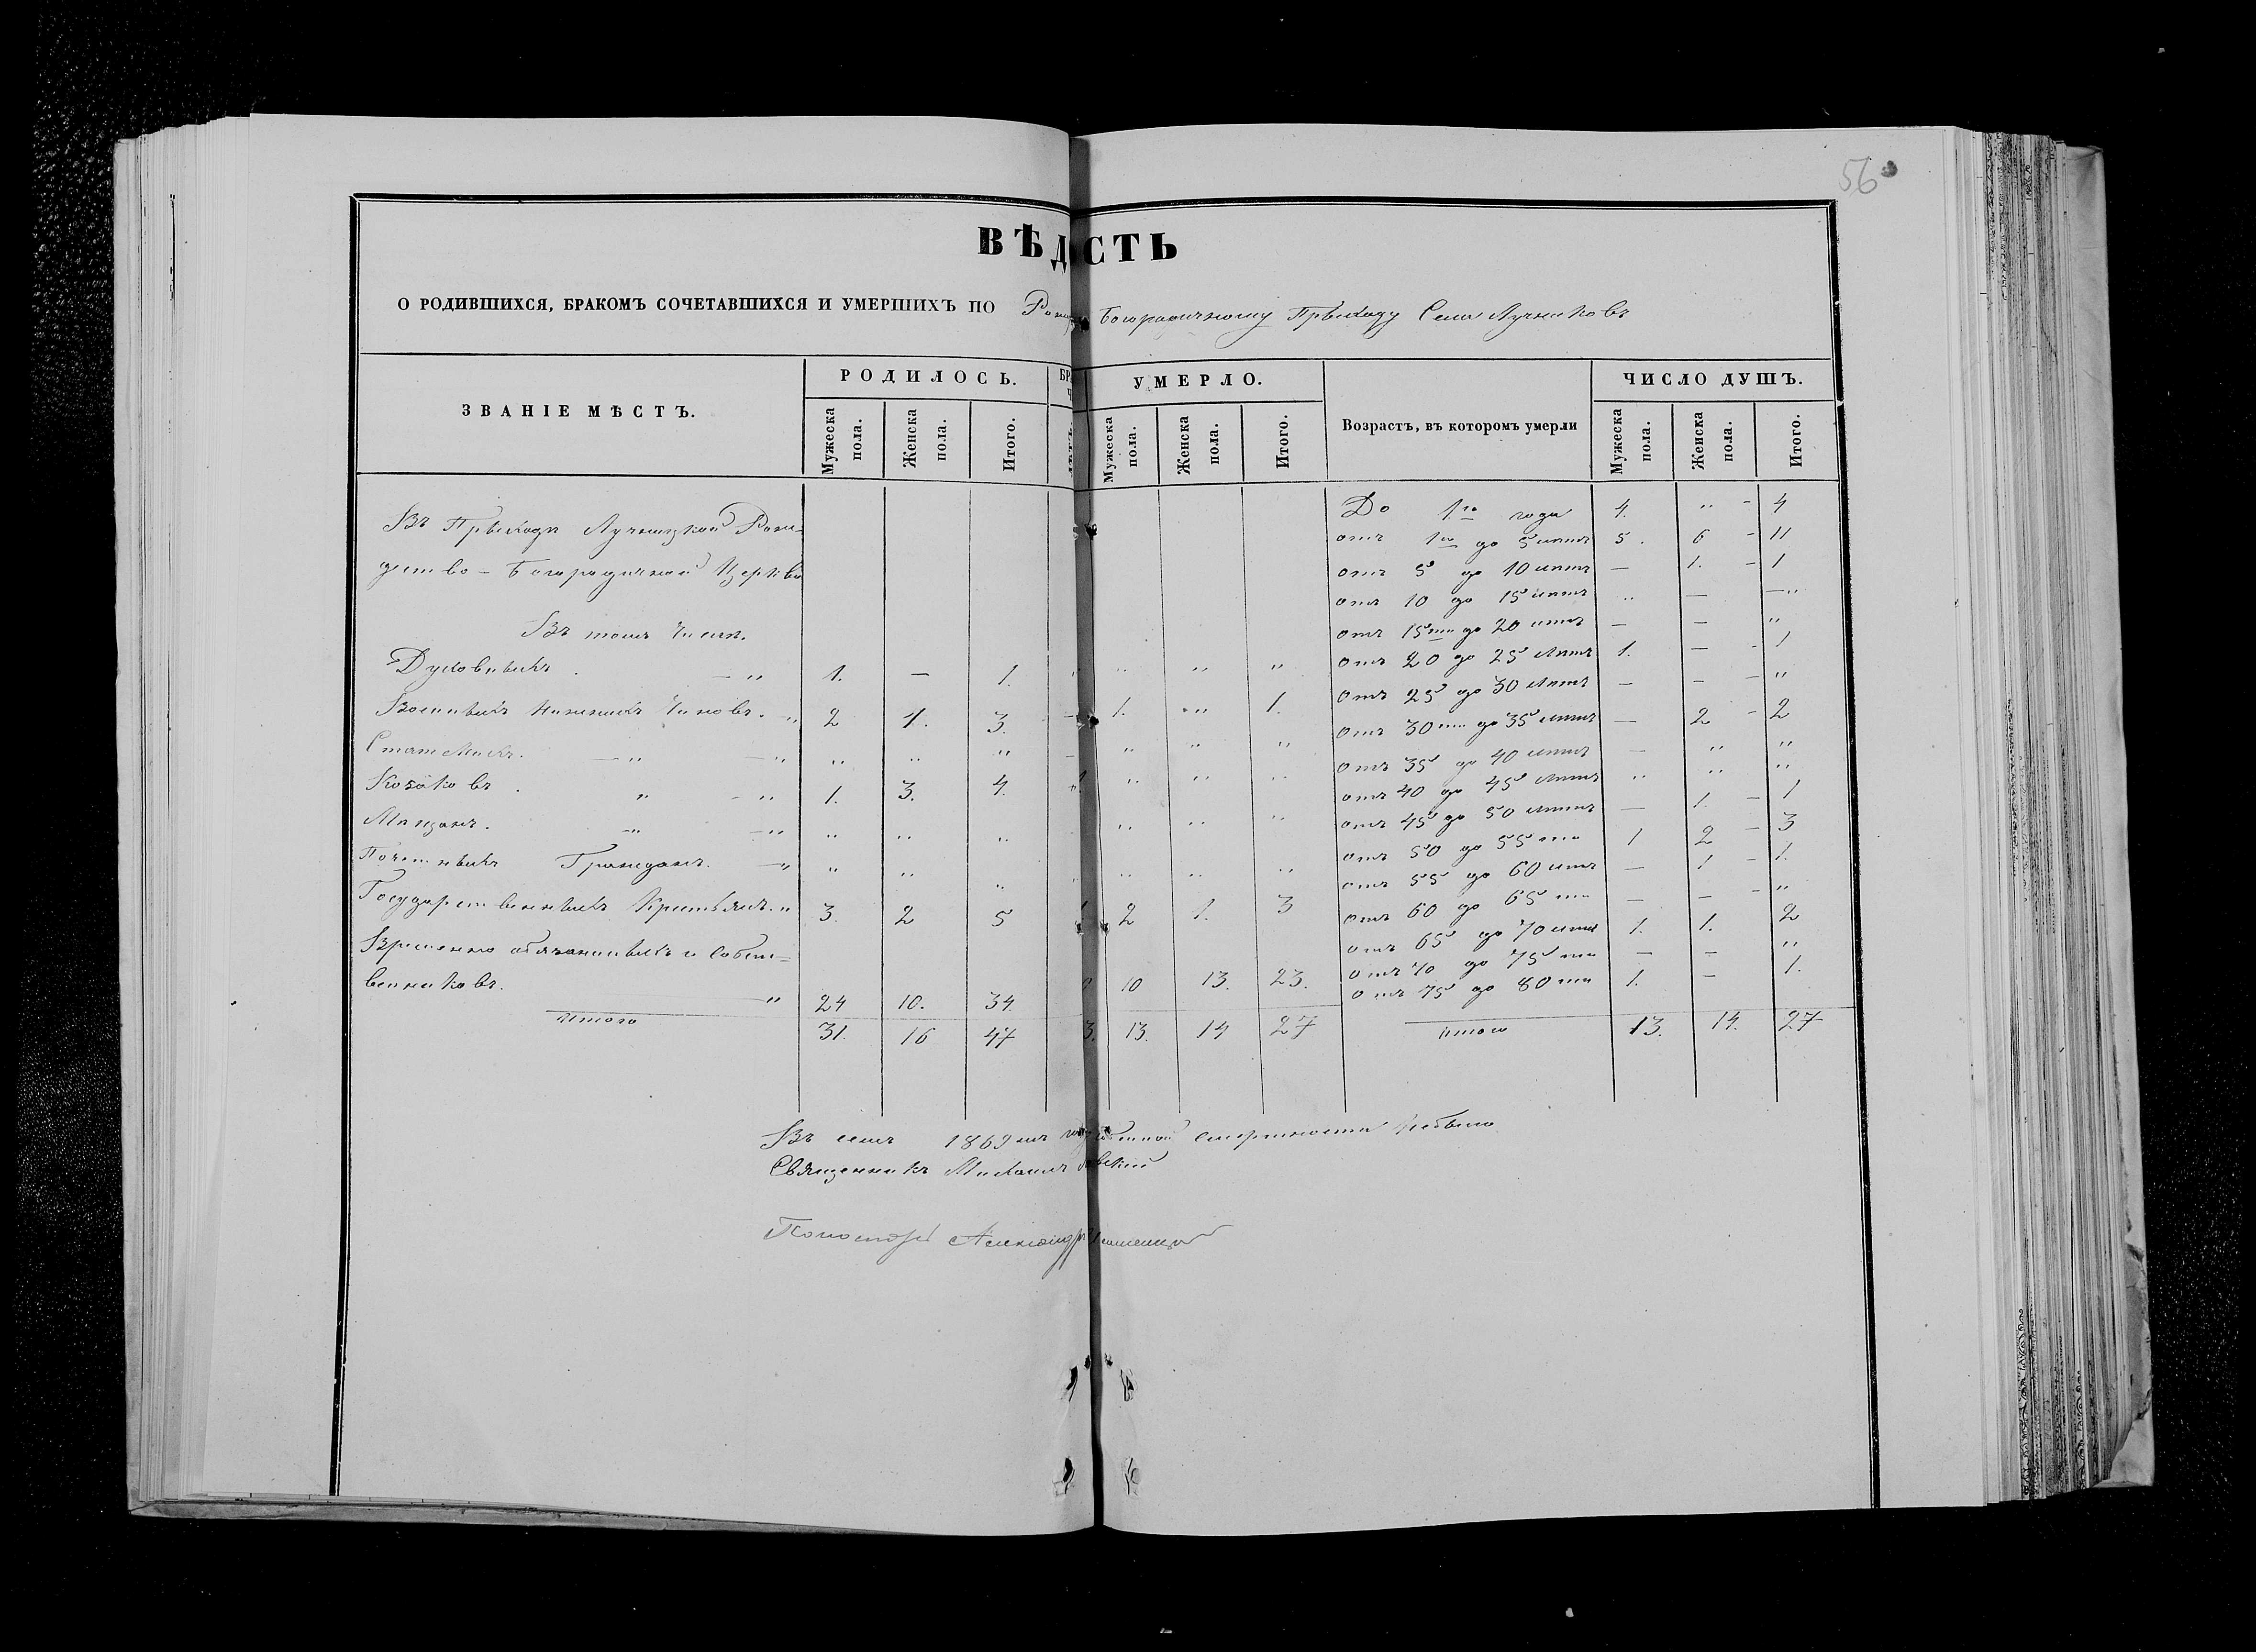 56
ВѢД СТЬ
О РОДИВШИХСЯ, БРАКОМЪ СОЧЕТАВШИХСЯ И УМЕРШИХЪ ПО Рож Богородичному Приходу Села Лучниковъ
ЗВАНІЕ МѢСТЪ. РОДИЛОСЬ. УМЕРЛО. Возрастъ, въ которомъ умерли ЧИСЛО ДУШЪ.
Мужеска пола. Женска пола. Итого. Мужеска пола. Женска пола. Итого. Мужеска пола. Женска пола. Итого.
До 1го года 4. " - 4
Въ Приходѣ Лучницкой Рож-
отъ 1го до 5 лѣтъ 5. 6 - 11
дество-Богородичной Церкви
отъ 5 до 10 лѣтъ — 1. - 1
отъ 10 до 15 лѣтъ " — — "
Въ томъ числѣ.
отъ 15ти до 20 лѣтъ — — "
Духовныхъ . — " 1. — 1. " " "
отъ 20 до 25 лѣтъ 1. — - 1
отъ 25 до 30 лѣтъ — - — "
Военныхъ Нижнихъ Чиновъ. - " 2 1. 3. 1. " 1.
отъ 30ти до 35 лѣтъ — 2 - 2
— " — " " " " " " "
отъ 35 до 40 лѣтъ — " "
Козаковъ . " - " 1. 3. 4. " " "
отъ 40 до 45 лѣтъ " " "
отъ 45 до 50 лѣтъ — 1. — 1
Мѣщанъ. — " — " " " " " " "
отъ 50 до 55 ти 1 2 — 3
Почетныхъ Гражданъ. — " " " " " " "
отъ 55 до 60 лѣтъ — 1 - 1.
Государственныхъ Крестьянъ. " 3. 2 5 2 1. 3
отъ 60 до 65 ти — — - "
отъ 65 до 70 лѣтъ 1. 1. 2
Временно обязанныхъ и Собст=
отъ 70 до 75 ти — — "
венниковъ. — " 24 10. 34. 10 13. 23.
отъ 75 до 80 ти 1. - 1.
Итого 31. 16 47 3. 13. 14 27 Итого 13. 14. 27
Въ семъ 1869мъ смертности небыло
Священникъ Михаилъ
Пономарь Александръ